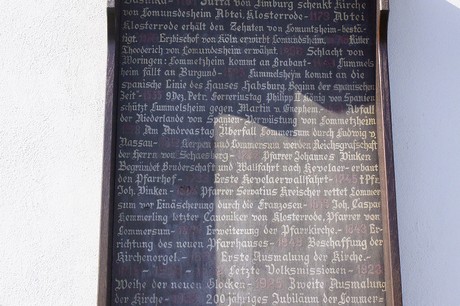 Jutta von Limburg schenkt Kirche
von Lomundsdesheim Abtei Klosterrode · 1173 Abtei
Klosterrode erhält den Zehnten von Lomuntsheim bestä-
tigt. Erzbischof von Köln erwirbt Lomundsheim. Ritter
Theoderich von Lomundsheim erwähnt. Schlacht von
Woringen: Lommetzheim kommt an Brabant · Lummels
heim fällt an Burgund · Lummelsheim kommt an die
spanische Linie des Hauses Habsburg. Beginn der spanischen
Zeit · 9 Dez. Petr. Philipp II Spanien
schützt Lummelsheim gegen Martin v. Abfall
der Niederlande von Spanien Verwüstung von Lommetzheim
Am Andreastag Überfall Lommersum durch Ludwig v.
Nassau · Kerpen und Lommersum werden Reichsgrafschaft
der Herrn von Pfarrer Johannes Vinken
Begründet Bruderschaft und Wallfahrt nach Kevelaer erbaut
den Pfarrhof · Erste Kevelaerwallfahrt · † Pfr.
Joh. Vinken · Pfarrer Servatius Kreischer rettet Lommer
sum vor Einäscherung durch die Franzosen · Joh. Caspar
Kemmerling letzter Canoniker von Klosterrode, Pfarrer von
Lommersum · Erweiterung der Pfarrkirche · Er-
richtung des neuen Pfarrhauses · 1849 Beschaffung der
Kirchenorgel · Erste Ausmalung der Kirche ·
Letzte Volksmissionen · 1923
Weihe der neuen Glocken · 1925 Zweite Ausmalung
der Kirche · 200 jähriges Jubiläum der Lommer-